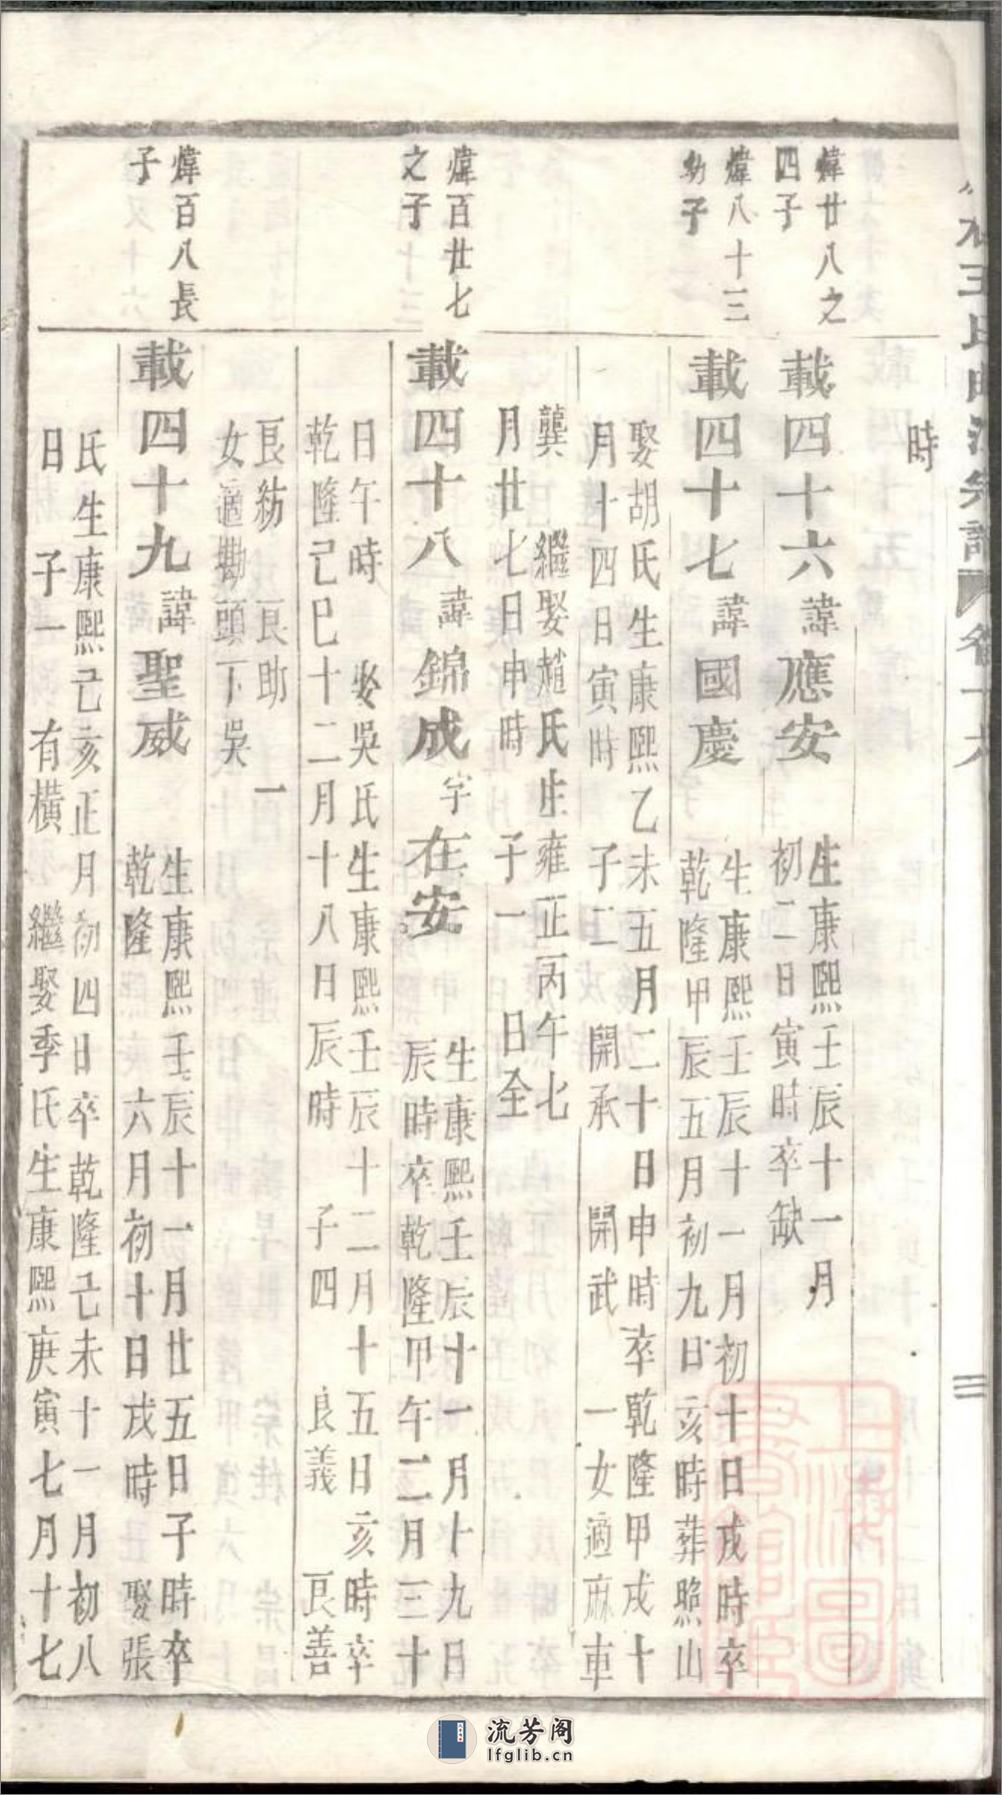 時
煒廿八之
四子
載四十六諱應安
生康熙壬辰十一月
初二日寅時卒缺
煒八十三
幼子
載四十七諱國慶
生康熙壬辰十一月初十日戌時卒
乾隆甲辰五月初九日亥時葬照山
娶胡氏生康熙乙未五月二十日申時卒乾隆甲戌十
月十四日寅時 子二 開承 開武 一女適麻車
龔 繼娶趙氏生雍正丙午七
月廿七日申時 子一 日全
煒百廿七
之子
載四十八諱錦成字在安
生康熙壬辰十一月十九日
辰時卒乾隆甲午二月三十
日午時 娶吳氏生康熙壬辰十二月十五日亥時卒
乾隆己巳十二月十八日辰時 子四 良義 良善
良紡 良助 一
女適勘頭下吳
煒百八長
子
載四十九諱聖威
生康熙壬辰十一月廿五日子時卒
乾隆 六月初十日戌時 娶張
氏生康熙己亥正月初四日卒乾隆己未十一月初八
日 子一 有橫 繼娶季氏生康熙庚寅七月十七
王氏
宗譜
卷十六
三
上海圖書館藏
流芳阁
lfglib.cn